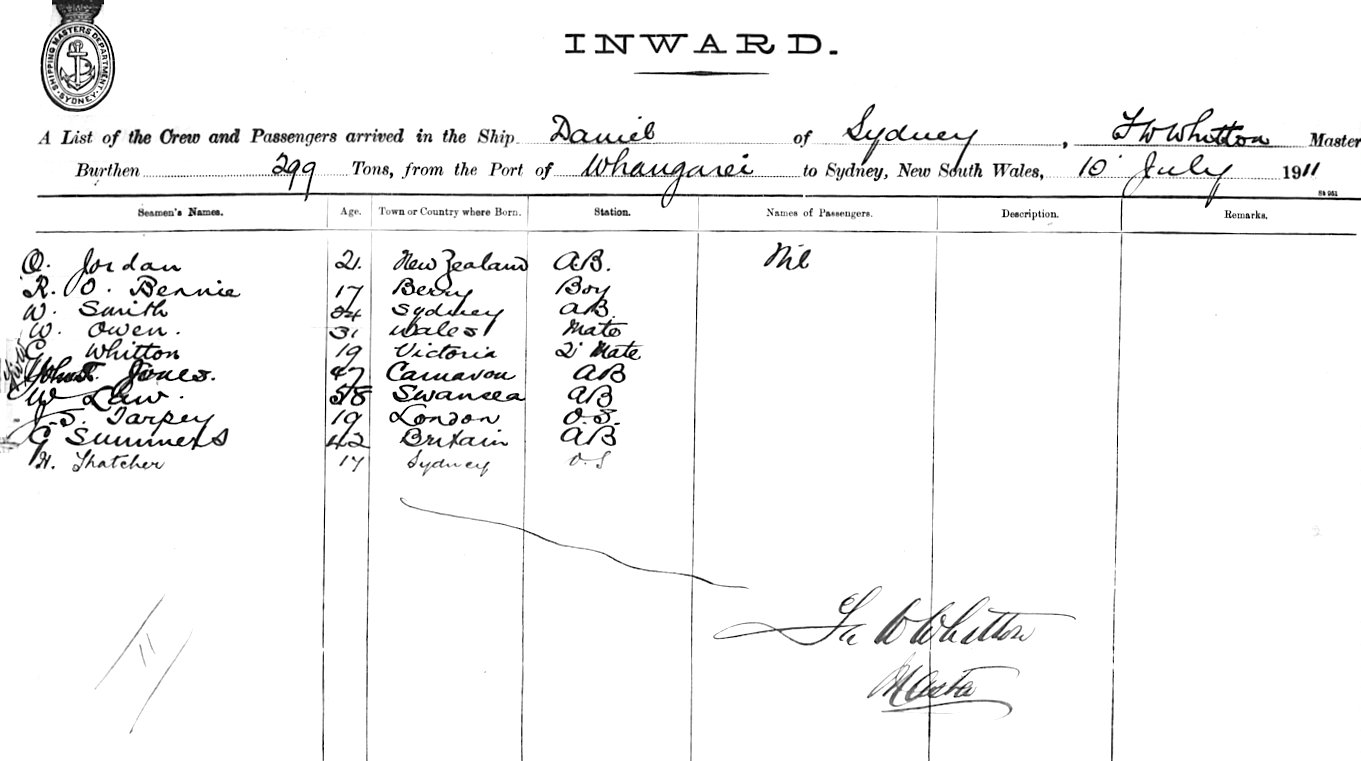 SHIPPING MASTERS DEPARTMENT SYDNEY
INWARD.
A List of the Crew and Passengers arrived in the Ship Daniel of Sydney, F W Whitton Master
Burthen 299 Tons, from the Port of Whangarei to Sydney, New South Wales, 10 July 1911
St 951
Seamen's Names. Age. Town or Country where Born. Station. Names of Passengers. Description. Remarks.
O. Jordan 21. New Zealand A.B. Nil
R. O. Bennie 17 Berry Boy
W. Smith 24 Sydney A.B.
W. Owen. 31 Wales Mate
G. Whitton 19 Victoria 2' Mate
John Jones. 47 Carnavon AB
W Law. 58 Swansea AB
J. S. Tarpey 19 London O.S.
G Summers 42 Britain AB
H. Thatcher 17 Sydney O.S
W Whitton
Master
11